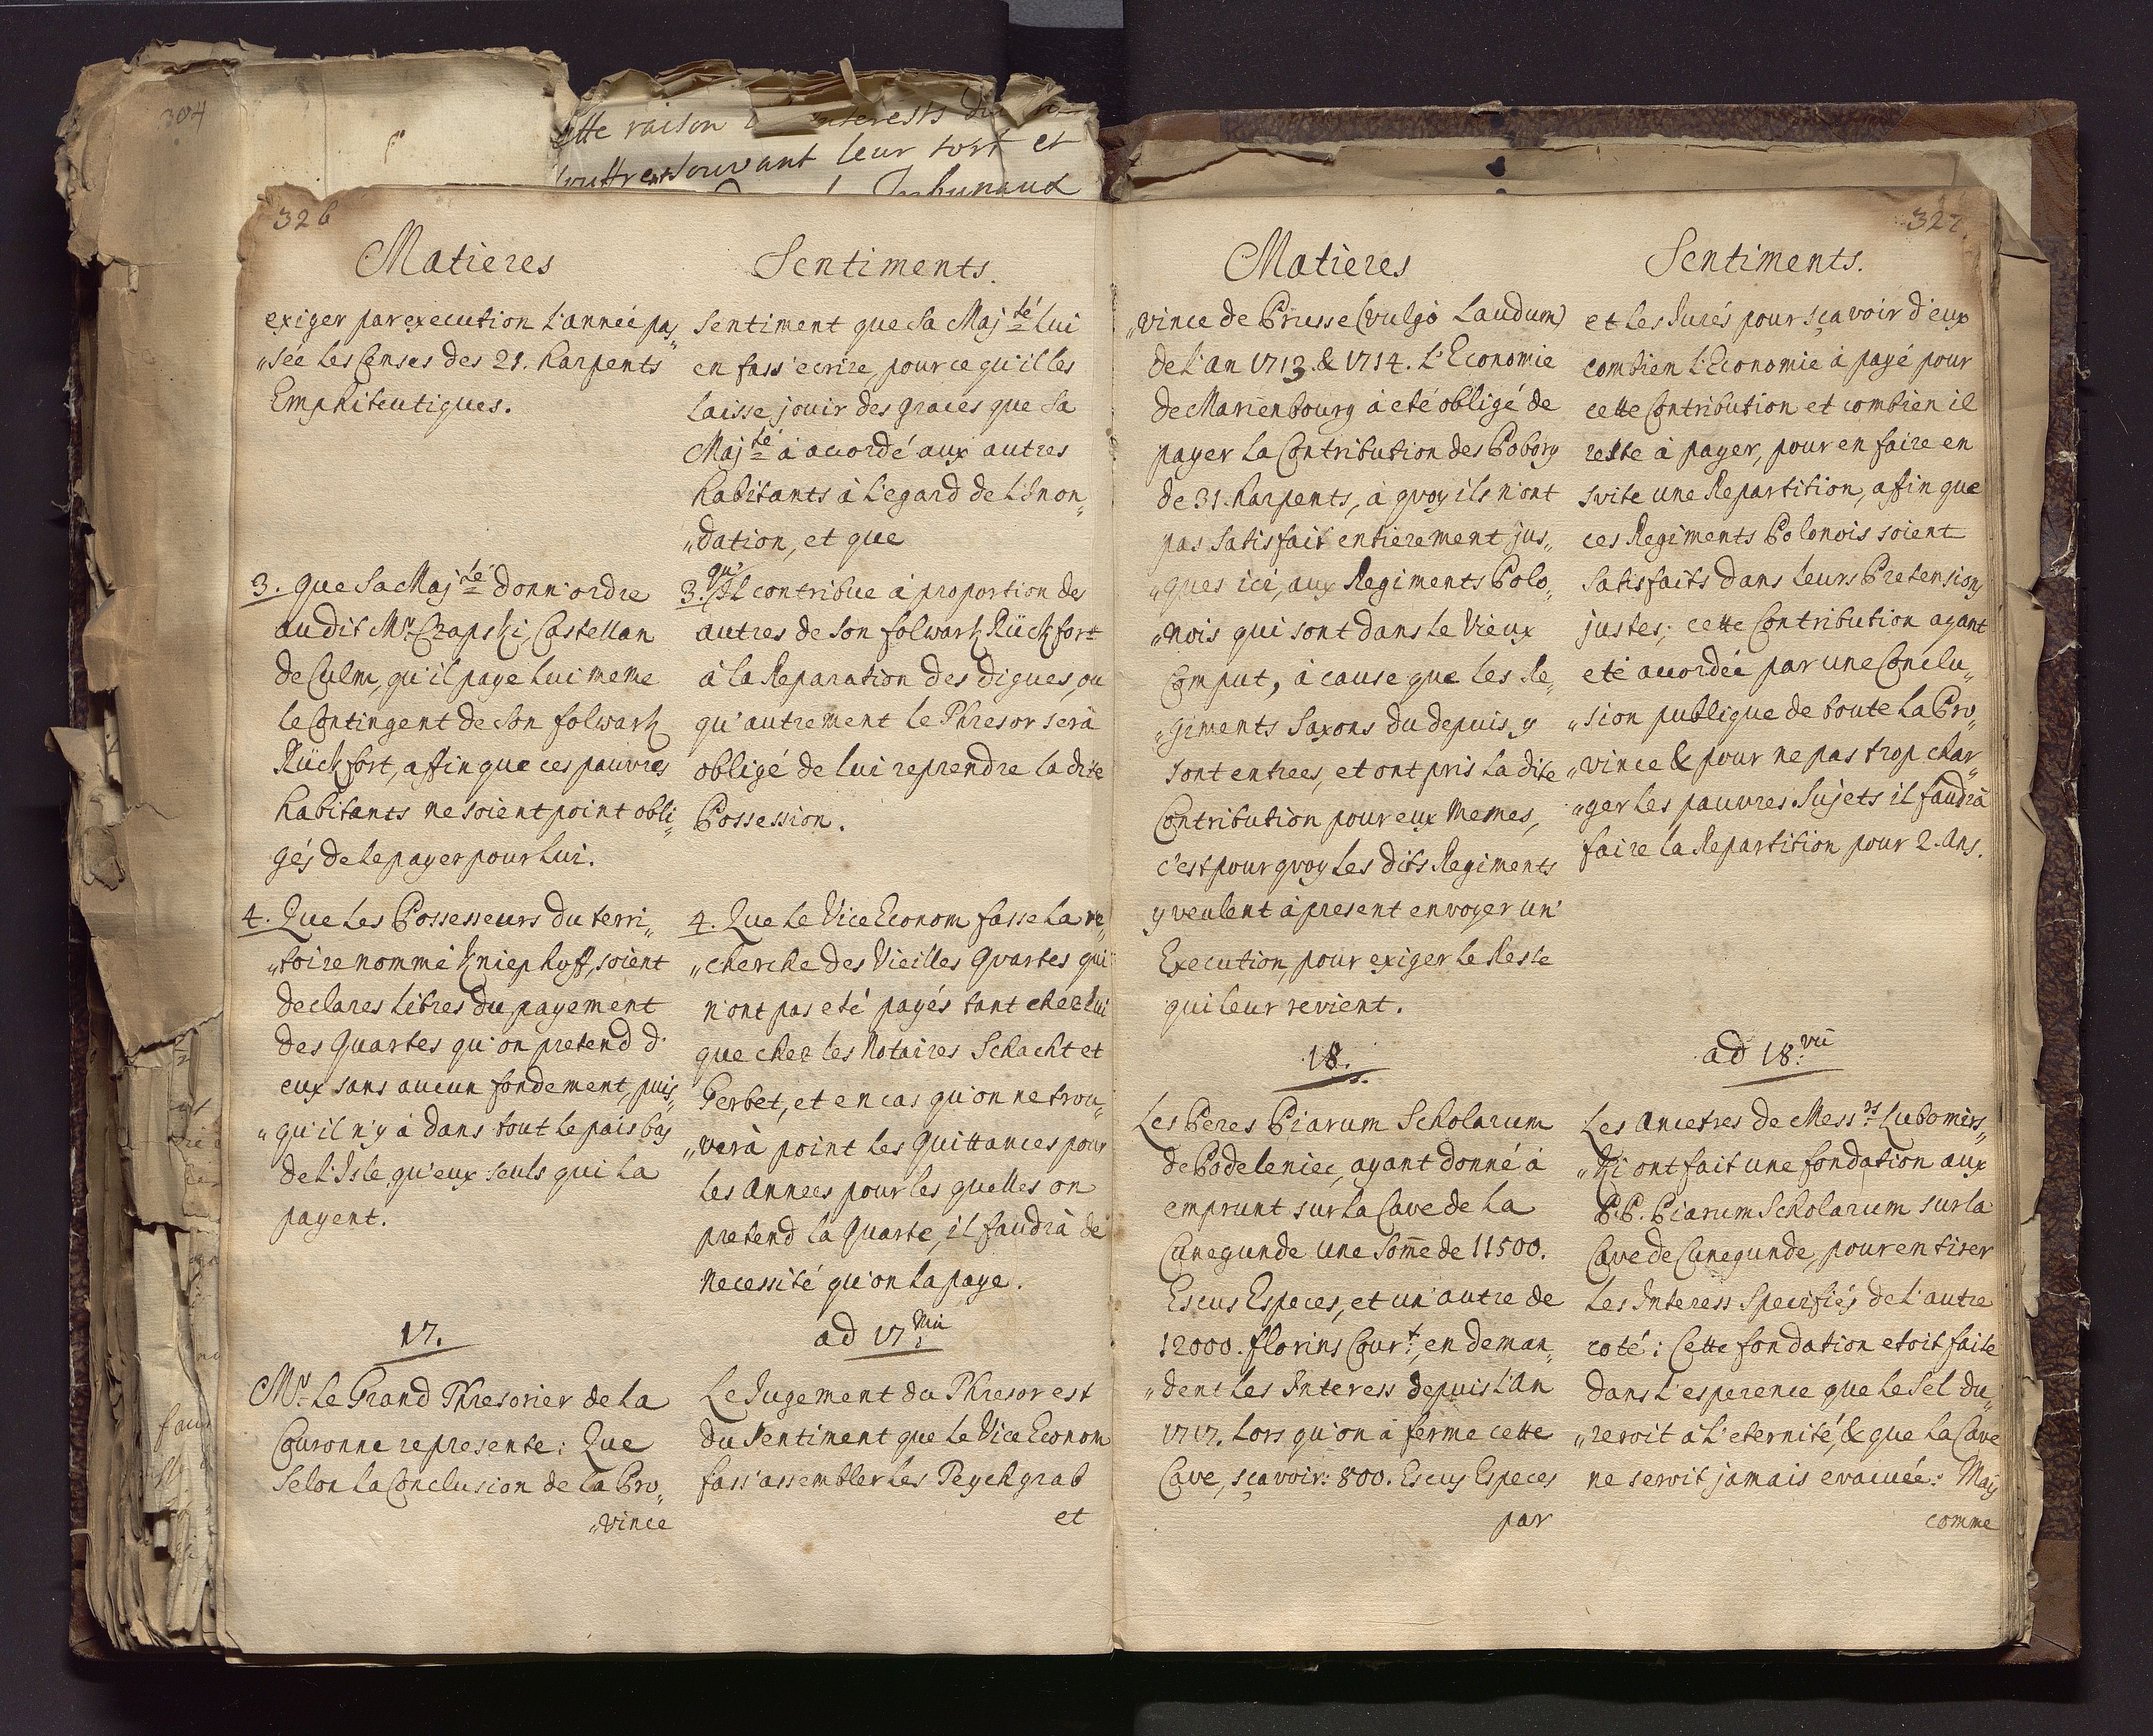 304
cette raison
interests du
souffrent souvant leur tort et
326
Matieres
exiger par execution l'année pas„
„sée les Censes des 21. harpents
Emphiteutiques.
3. que Sa Maj.té donn' ordre
au dit Mr. Czapski, Castellan
de Culm, qu'il paye lui meme
le Contingent de son folwark
Rückfort, affin que ces pauvres
habitants ne soient point obli„
gés de le payer pour lui.
4. Que les Possesseurs du terri„
„toire nommé Kniephoff, soient
declares libres du payement
des Quartes qu'on pretend d'
eux sans aucun fondement, puis„
„qu'il n'y à dans tout le païs bas
de l'Isle, qu'eux seuls qui la
payent.
17.
Mr. le Grand Thresorier de la
Couronne represente: Que
selon la Conclusion de la Pro„
„vince
Sentiments.
Sentiment que Sa Maj.té lui
en fass' ecrire, pour ce qu'il les
laisse jouir des graces que Sa
Maj.té à accordé aux autres
habitants à l'egard de l'Inon„
„dation, et que
qu'
3. Il contribue à proportion des
autres de son folwark Rückfort
à la Reparation des digues, ou
qu'autrement le Thresor serà
obligé de lui reprendre la dite
Possession.
4. Que le Vice Econom fasse la re„
„cherche des Vieilles Quartes qui
n'ont pas eté payés tant chez lui
que chez les Notaires Schacht et
Gerbet, et en cas qu'on ne trou„
„verà point les Quittances pour
les Annees pour les quelles on
pretend la Quarte, il faudrà de
necessité qu'on la paye.
ad 17.mū
Le Jugement du Thresor est
du Sentiment que le Vice Econom
fass' assembler les Teychgrab
et
327.
Matieres
„vince de Prusse (vulgò Laudum)
de l'an 1713. & 1714. l'Economie
de Marienbourg à eté obligé de
payer la Contribution des Pobory
de 31. harpents, à quoy ils n'ont
pas satisfait entierement jus„
„ques ici, aux Regiments Polo„
„nois qui sont dans le Vieux
Comput, à cause que les Re„
„giments Saxons du depuis, y
sont entrees, et ont pris la dite
Contribution pour eux memes,
c'est pourquoy les dits Regiments
y veulent à present envoyer un'
Execution, pour exiger le Reste
qui leur revient.
18.
Les Peres Piarum Scholarum
de Podeleniec, ayant donné à
emprunt sur la Cave de la
Cunegunde une Som̄e de 11500.
Escus Especes, et un'autre de
12000. florins Cour.t, en deman„
„dent les Interess depuis l'An
1717. lors qu'on à fermé cette
Cave, sçavoir: 800. Escus Especes
par
Sentiments.
et les Jurés pour sçavoir d'eux
combien l'Economie à payé pour
cette Contribution et combien il
reste à payer, pour en faire en
suite une Repartition, affin que
ces Regiments Polonois soient
satisfaits dans leurs Pretensions
justes; cette Contribution ayant
eté accordée par une Conclu„
„sion publique de toute la Pro„
„vince & pour ne pas trop char„
„ger les pauvres Sujets il faudrà
faire la Repartition pour 2. Ans.
ad 18.vū
Les Ancetres de Mess.rs Lubomirs„
„ki ont fait une fondation aux
P.P. Piarum Scholarum sur la
Cave de Cunegunde, pour en tirer
les Interess specifiés de l'autre
coté: Cette fondation etoit faite
dans l'esperence que le Sel du„
„reroit à l'eternité, & que la Cave
ne seroit jamais evacuée: Mais
comme